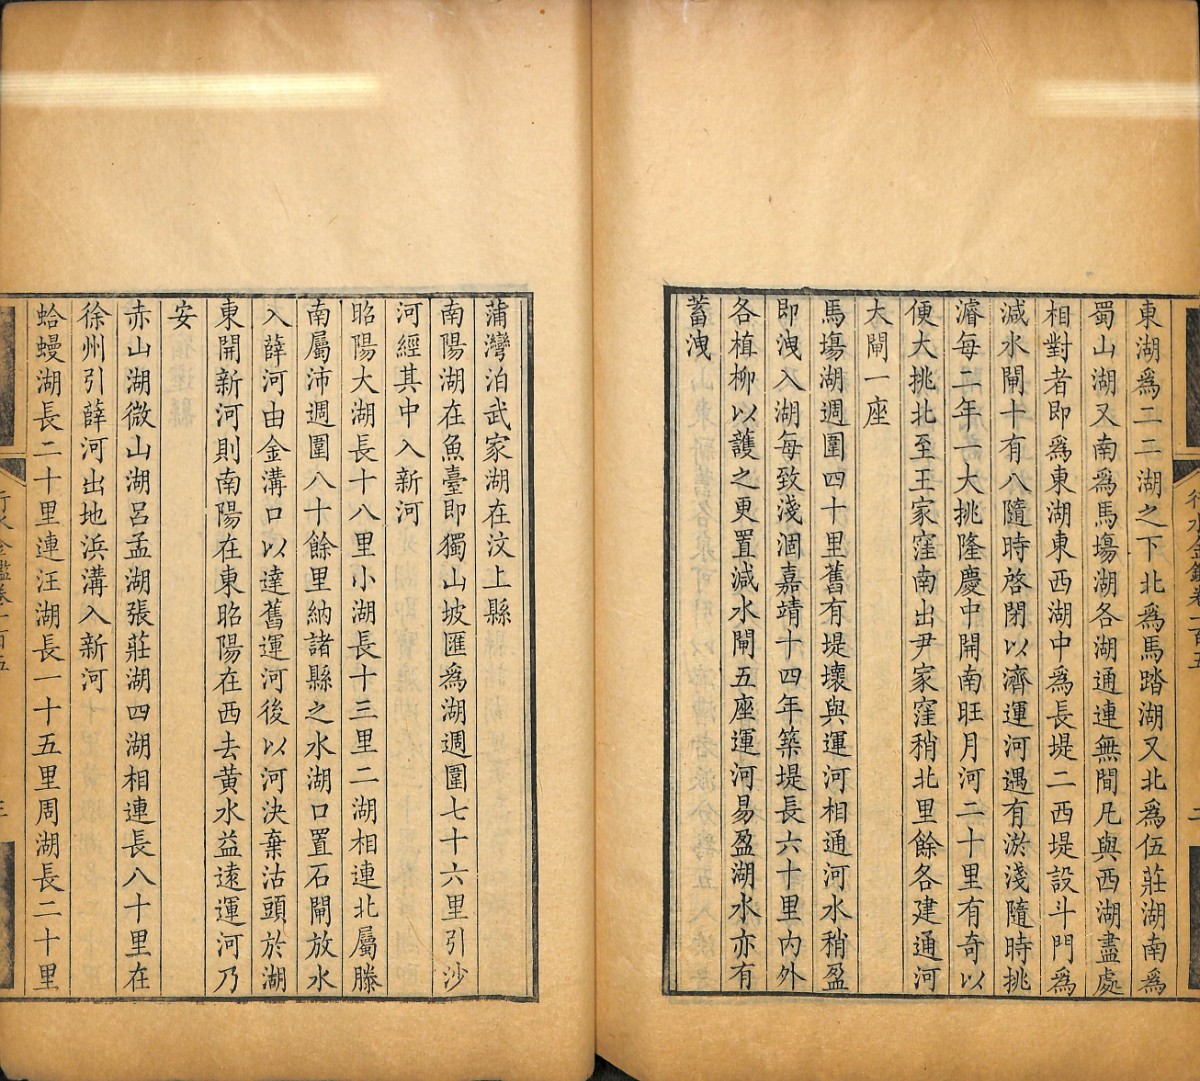 東湖爲二二湖之下北爲馬踏湖又北爲伍莊湖南爲
蜀山湖又南爲馬塲湖各湖通連無間凡與西湖盡處
相對者即爲東湖東西湖中爲長堤二西堤設斗門爲
減水閘十有八隨時啓閉以濟運河遇有淤淺隨時挑
濬每二年一大挑隆慶中開南旺月河二十里有奇以
便大挑北至王家窪南出尹家窪稍北里餘各建通河
大閘一座
馬塲湖週圍四十里舊有堤壞與運河相通河水稍盈
即洩入湖每致淺涸嘉靖十四年築堤長六十里内外
各植柳以護之更置減水閘五座運河易盈湖水亦有
蓄洩
蒲灣泊武家湖在汶上縣
南陽湖在魚臺即獨山坡匯爲湖週圍七十六里引沙
河經其中入新河
昭陽大湖長十八里小湖長十三里二湖相連北屬滕
南屬沛週圍八十餘里納諸縣之水湖口置石閘放水
入薛河由金溝口以達舊運河後以河決棄沽頭於湖
東開新河則南陽在東昭陽在西去黄水益遠運河乃
安
赤山湖微山湖呂孟湖張莊湖四湖相連長八十里在
徐州引薛河出地浜溝入新河
蛤蟃湖長二十里連汪湖長一十五里周湖長二十里
行水金鑑卷一百五